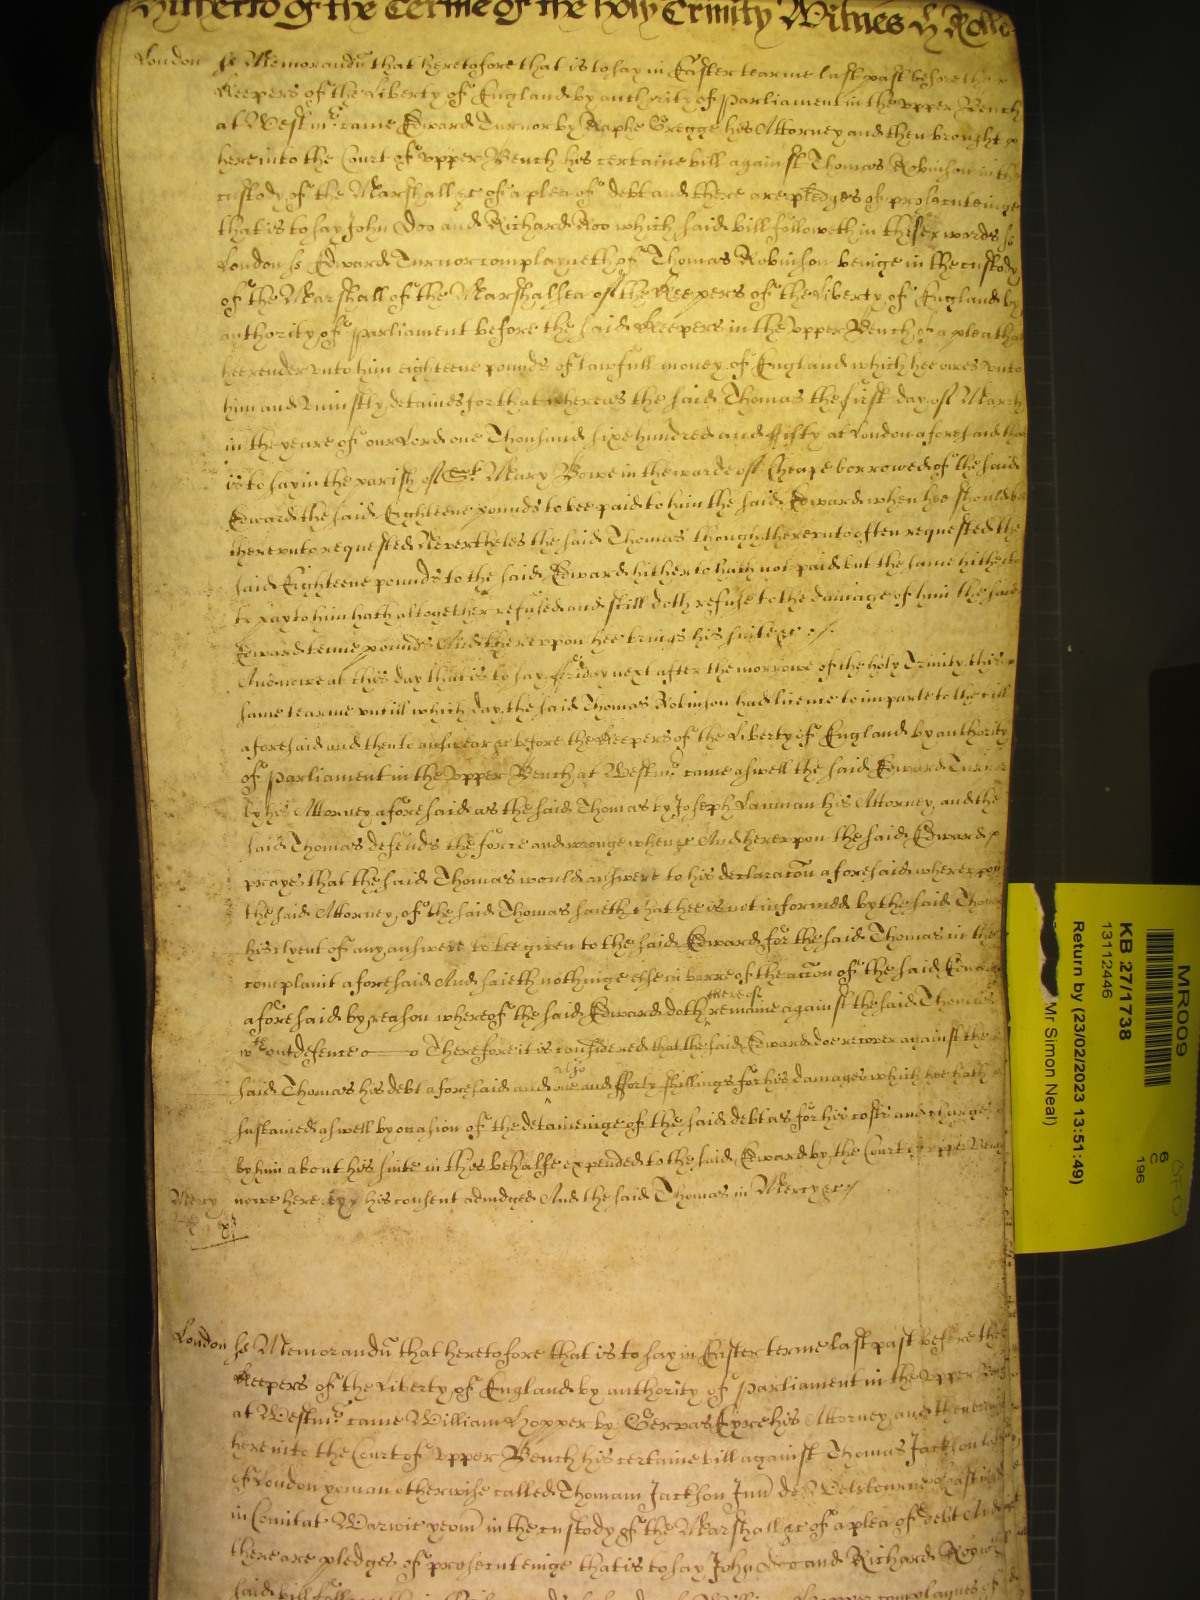 Hitherto of the Terme of the holy Trinity Witnes H Rolle
London ss Memorandū that heretofore that is to say in Easter tearme last past before the
Keepers of the Liberty of England by authority of Parliament in the upper Bench
at Westmr. came Edward Turnor by Raphe Gregge his Attorney and then brought
here into the Court of upper Bench his certaine bill against Thomas Robinson in the
custody of the Marshall &c of a plea of debt and there are pledges of prosecuteinge
that is to say John Doo and Richard Roo which said bill followeth in these words ss
London ss Edward Turnor complayneth of Thomas Robinson beinge in the custody
of the Marshall of the Marshalsea of the Keepers of the Liberty of England by
authority of Parliament before the said Keepers in the upper Bench of a plea that
hee render unto him eighteene pounds of lawfull money of England which hee owes unto
him and uniustly detaines for that whereas the said Thomas the first day of March
in the yeare of our Lord one Thousand sixe hundred and ffifty at London aforesaid that
is to say in the parish of St. Mary Bowe in the warde of Cheape borrowed of the said
Edward the said Eighteene pounds to bee paid to him the said Edward when hee should be
thereunto requested Nevertheles the said Thomas though thereunto often requested the
said Eighteene pounds to the said Edward hitherto hath not paid but the same hitherto
to pay to him hath altogether refused and still doth refuse to the damage of him the said
Edward tenne pounds And thereupon hee brings his suite &c
And nowe at this day that is to say ffriday next after the morrowe of the holy Trinity this
same tearme untill which day the said Thomas Robinson had licence to imparle to the bill
aforesaid and then to answear &c before the Keepers of the Liberty of England by authority
of Parliament in the upper Bench at Westmr. came aswell the said Edward Turnor
by his Attorney aforesaid as the said Thomas by Joseph Lanman his Attorney and the
said Thomas defends the force and wronge when &c And hereupon the said Edward
prayes that the said Thomas would answere to his declaracōn aforesaid whereupon
the said Attorney of the said Thomas saieth that hee is not informed by the said Thomas
his clyent of any answere to bee given to the said Edward for the said Thomas in the
complaint aforesaid And saieth nothinge else in barre of the accōn of the said Edward
aforesaid by reason whereof the said Edward doth thereof remaine against the said Thomas
wthout defence Therefore it is considered that the said Edward doe recover against the
said Thomas his debt aforesaid and also one and fforty shillings for his damages which hee hath
sustained aswell by occasion of the detaineinge of the said debt as for his costs and charges
by him about his suite in this behalfe expended to the said Edward by the Court of upper Bench
Mercy nowe here by his consent adiudged And the said Thomas in Mercy &c
London ss Memorandū that heretofore that is to say in Easter terme last past before the
Keepers of the Liberty of England by authority of Parliament in the upper Bench
at Westmr. came William Hopper by Gervas Eyre his Attorney and then
here into the Court of upper Bench his certaine bill against Thomas Jackson
of London yoman otherwise called Thomam Jackson Jun de
in Comitat Warwic yeom in the custody of the Marshall &c of a plea of debt And
there are pledges of prosecuteinge that is to say John Doo and Richard Roo
said bill
MR009
KB 27/1738
13112446
Return by (23/02/2023 13:51:49)
Mr Simon Neal)
6
C
196